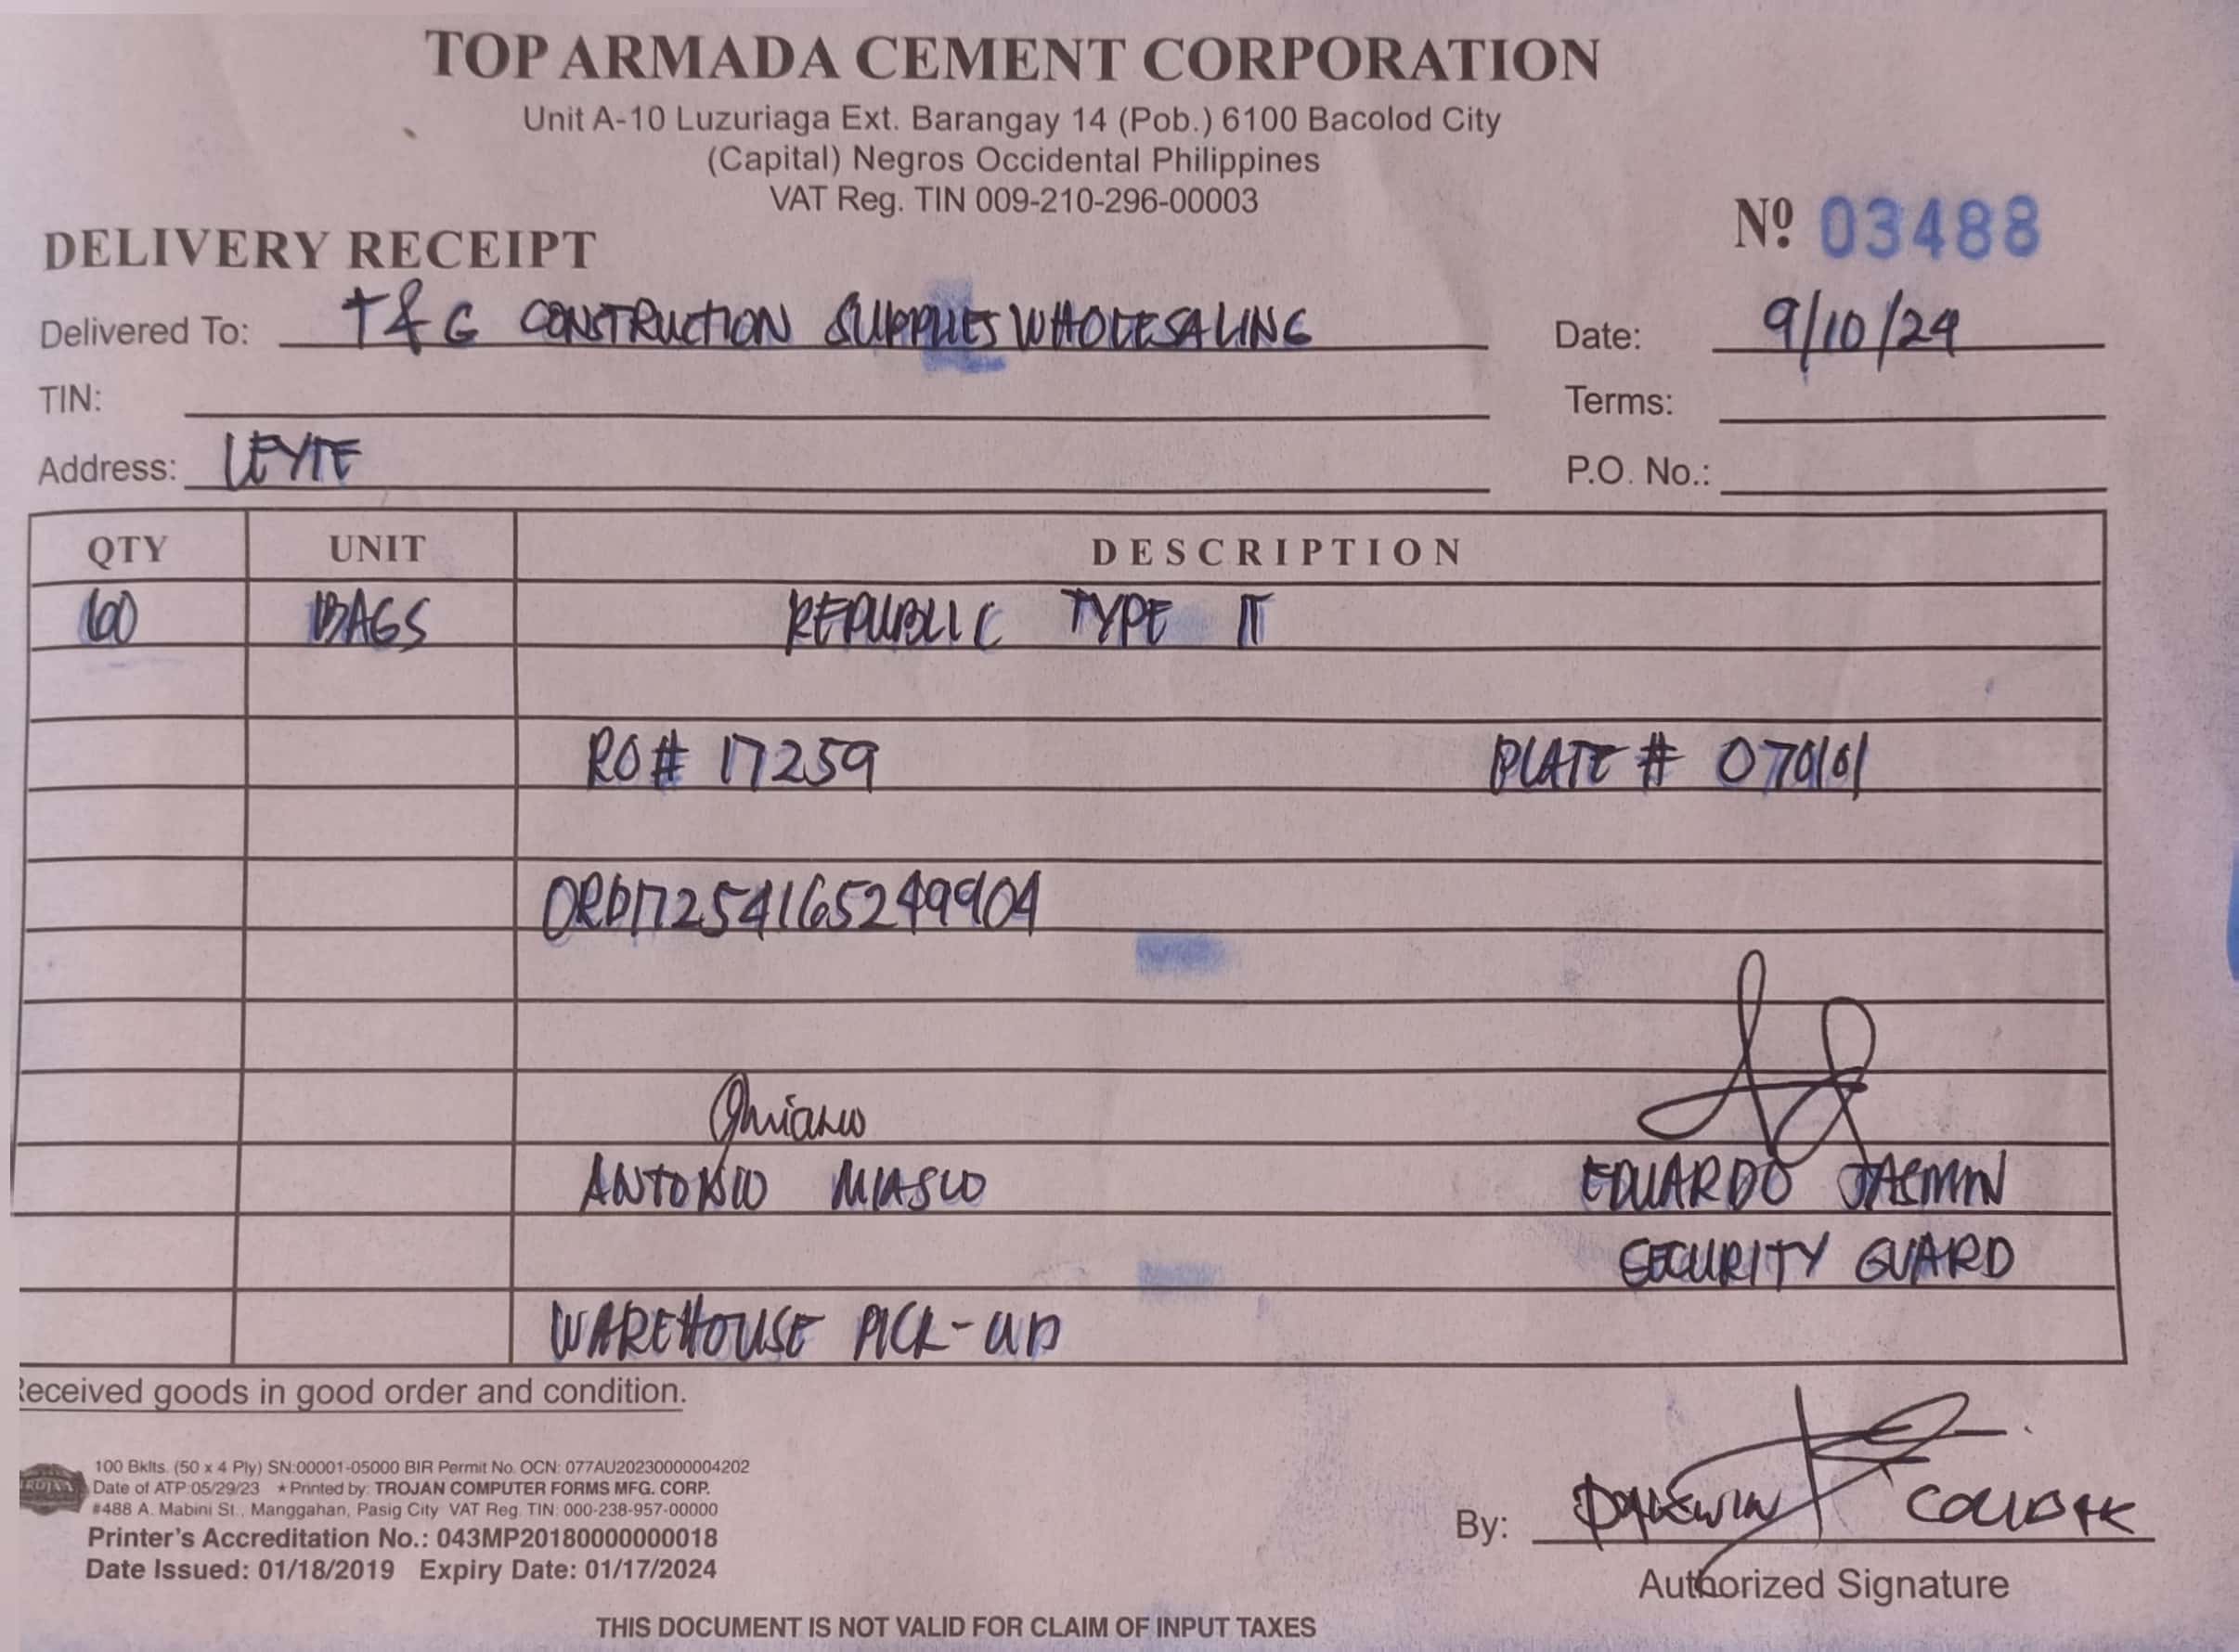 TOP ARMADA CEMENT CORPORATION
Unit A-10 Luzuriaga Ext. Barangay 14 (Pob.) 6100 Bacolod City
(Capital) Negros Occidental Philippines
VAT Reg. TIN 009-210-296-00003
Nº 03488
DELIVERY RECEIPT
Delivered To: T&G CONSTRUCTION SUPPLIES WHOLESALING Date: 9/10/24
TIN: Terms:
Address: LEYTE P.O. No.:
QTY UNIT DESCRIPTION
60 BAGS REPUBLIC TYPE
RO# 17259 PLATE # 070101
ORD17254165249904
ANTONIO MIASCO EDUARDO JASMIN
SECURITY GUARD
WAREHOUSE PICK-UP
Received goods in good order and condition.
100 Bklts. (50 x 4 Ply) SN:00001-05000 BIR Permit No. OCN: 077AU20230000004202
Date of ATP:05/29/23 ★Printed by: TROJAN COMPUTER FORMS MFG. CORP.
#488 A. Mabini St., Manggahan, Pasig City VAT Reg. TIN: 000-238-957-00000
Printer's Accreditation No.: 043MP20180000000018
Date Issued: 01/18/2019 Expiry Date: 01/17/2024
By:
Authorized Signature
THIS DOCUMENT IS NOT VALID FOR CLAIM OF INPUT TAXES